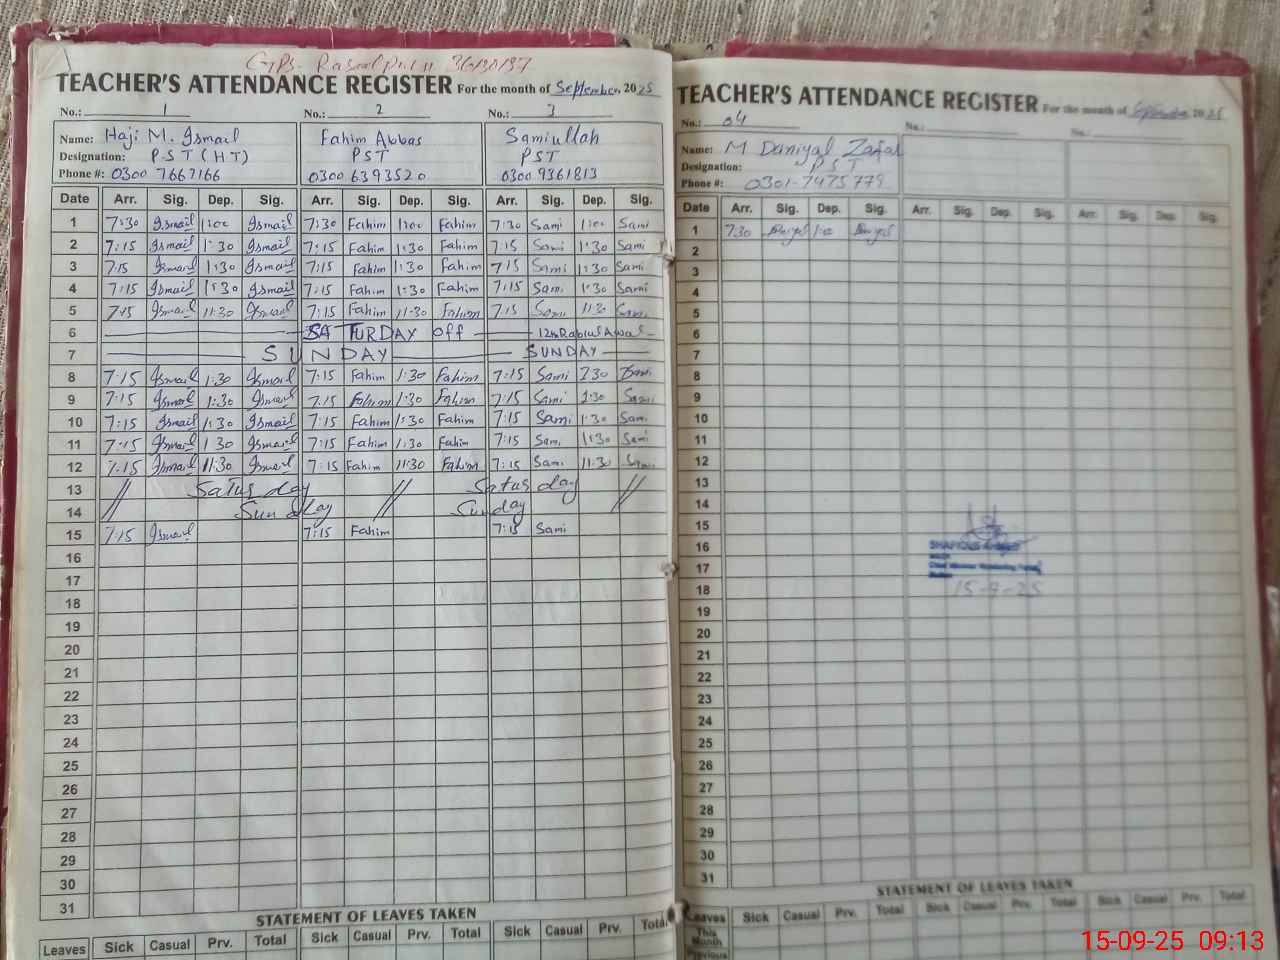 GPS. Rasulpur
TEACHER'S ATTENDANCE REGISTER For the month of September, 2025
No.: 1 No.: 2 No.: 3
Name: Haji M. Ismail Fahim Abbas Samiullah
Designation: PST (HT) PST PST
Phone #: 0300 7667166 0300 6393520 0300 9361813
Date Arr. Sig. Dep. Sig. Arr. Sig. Dep. Sig. Arr. Sig. Dep. Sig.
1 7:30 Ismail 1:00 Ismail 7:30 Fahim 1:00 Fahim 7:30 Sami 1:00 Sami
2 7:15 Ismail 1:30 Ismail 7:15 Fahim 1:30 Fahim 7:15 Sami 1:30 Sami
3 7:15 Ismail 1:30 Ismail 7:15 Fahim 1:30 Fahim 7:15 Sami 1:30 Sami
4 7:15 Ismail 1:30 Ismail 7:15 Fahim 1:30 Fahim 7:15 Sami 1:30 Sami
5 7:15 Ismail 11:30 Ismail 7:15 Fahim 11:30 Fahim 7:15 Sami 11:30 Sami
6 SATURDAY off 12th Rabiul Awal
7 SUNDAY SUNDAY
8 7:15 Ismail 1:30 Ismail 7:15 Fahim 1:30 Fahim 7:15 Sami Sami
9 7:15 Ismail 1:30 Ismail 7:15 Fahim 1:30 Fahim 7:15 Sami 1:30 Sami
10 7:15 Ismail 1:30 Ismail 7:15 Fahim 1:30 Fahim 7:15 Sami 1:30 Sami
11 7:15 Ismail 1:30 Ismail 7:15 Fahim 1:30 Fahim 7:15 Sami 1:30 Sami
12 7:15 Ismail 11:30 Ismail 7:15 Fahim 11:30 Fahim 7:15 Sami 11:30 Sami
13 // Saturday // Saturday //
14 Sunday Sunday
15 7:15 Ismail 7:15 Fahim 7:15 Sami
16
17
18
19
20
21
22
23
24
25
26
27
28
29
30
31
STATEMENT OF LEAVES TAKEN
Leaves Sick Casual Prv. Total Sick Casual Prv. Total Sick Casual Prv. Total
TEACHER'S ATTENDANCE REGISTER For the month of September, 2025
No.: 04 No.: No.:
Name: M Daniyal Zafar
Designation: PST
Phone #: 0301-7475779
Date Arr. Sig. Dep. Sig. Arr. Sig. Dep. Sig. Arr. Sig. Dep. Sig.
1 7:30 Daniyal 1:00 Daniyal
2
3
4
5
6
7
8
9
10
11
12
13
14
15
16
17
18
15-9-25
19
20
21
22
23
24
25
26
27
28
29
30
31
STATEMENT OF LEAVES TAKEN
Leaves Sick Casual Prv. Total Sick Casual Prv. Total Sick Casual Prv. Total
This Month
Previous
15-09-25 09:13